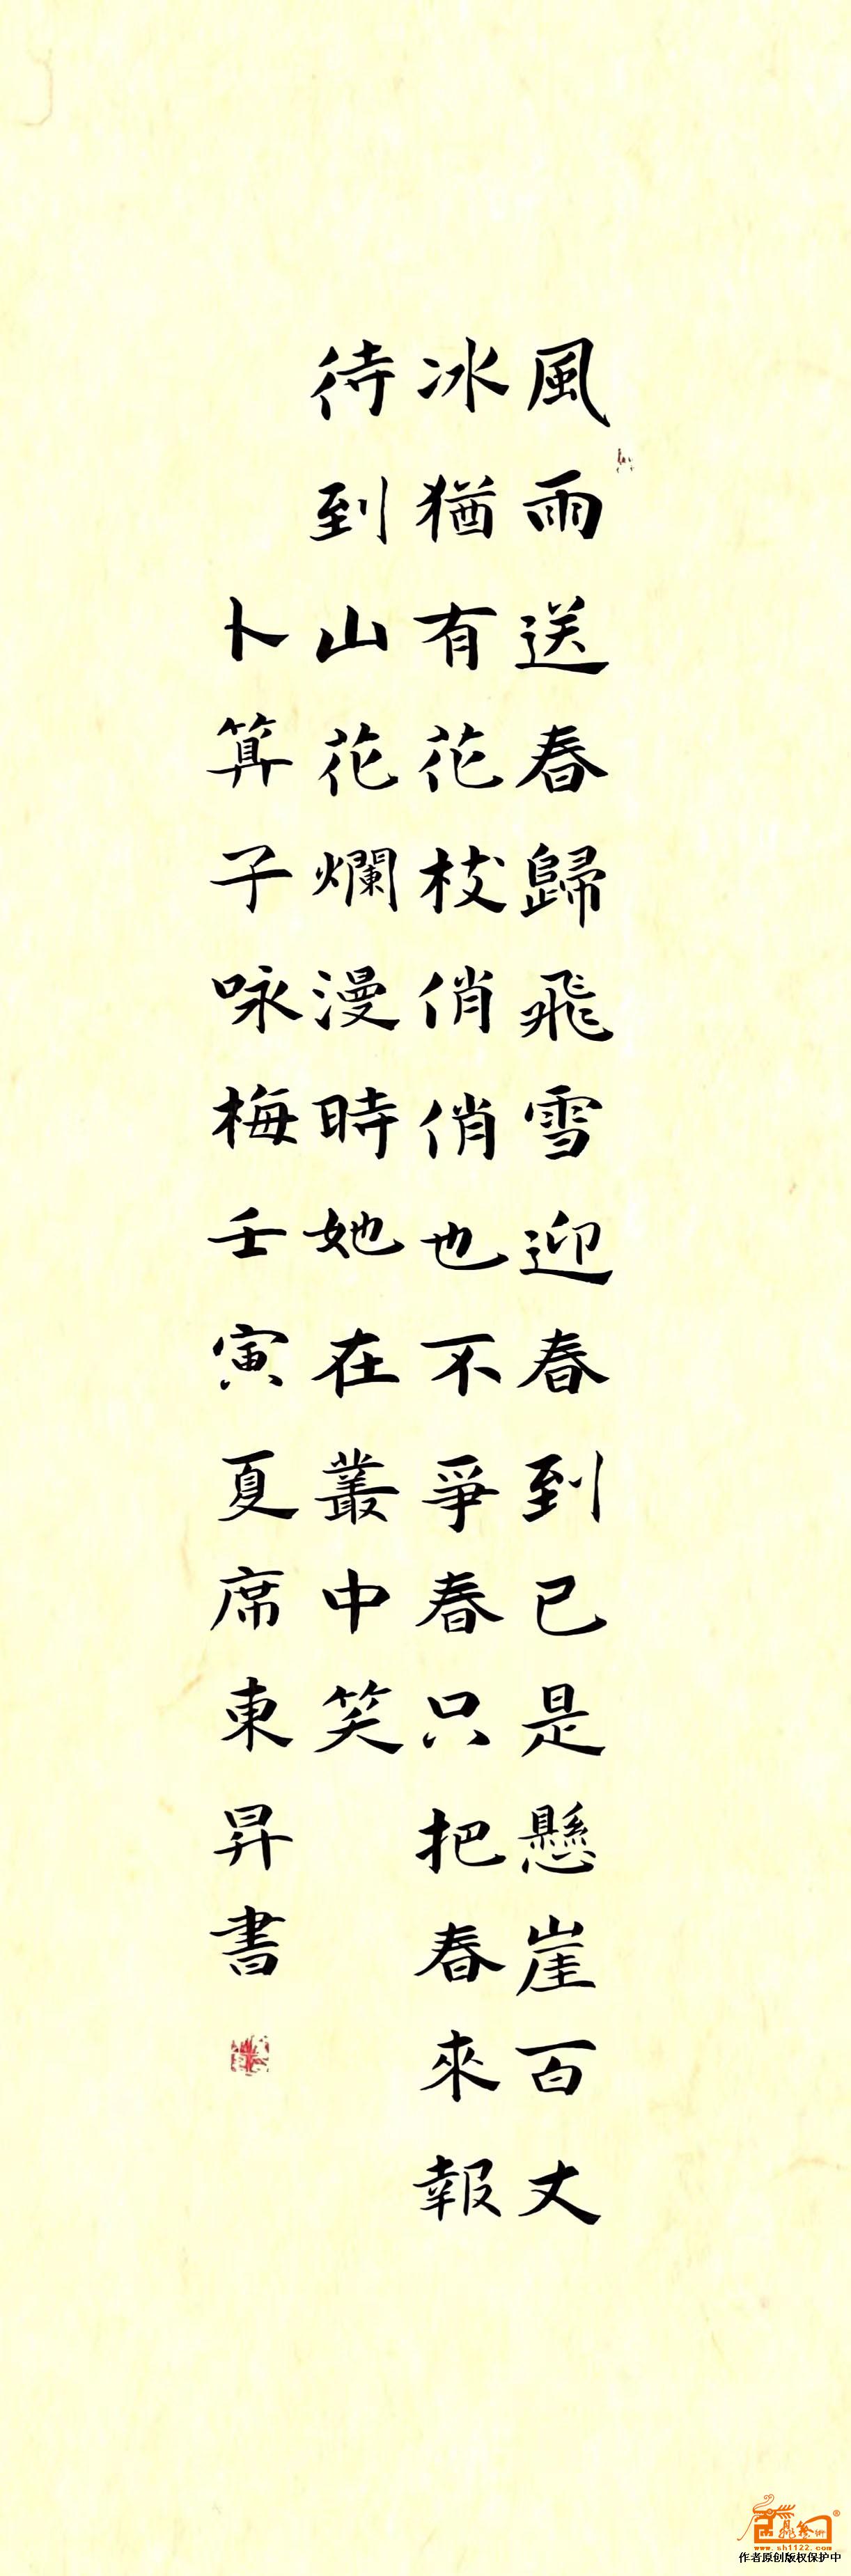 風雨送春歸飛雪迎春到已是懸崖百丈
冰猶有花枝俏俏也不爭春只把春來報
待到山花爛漫時她在叢中笑
卜算子咏梅壬寅夏席東昇書
www.sh1122.com
作者原创版权保护中